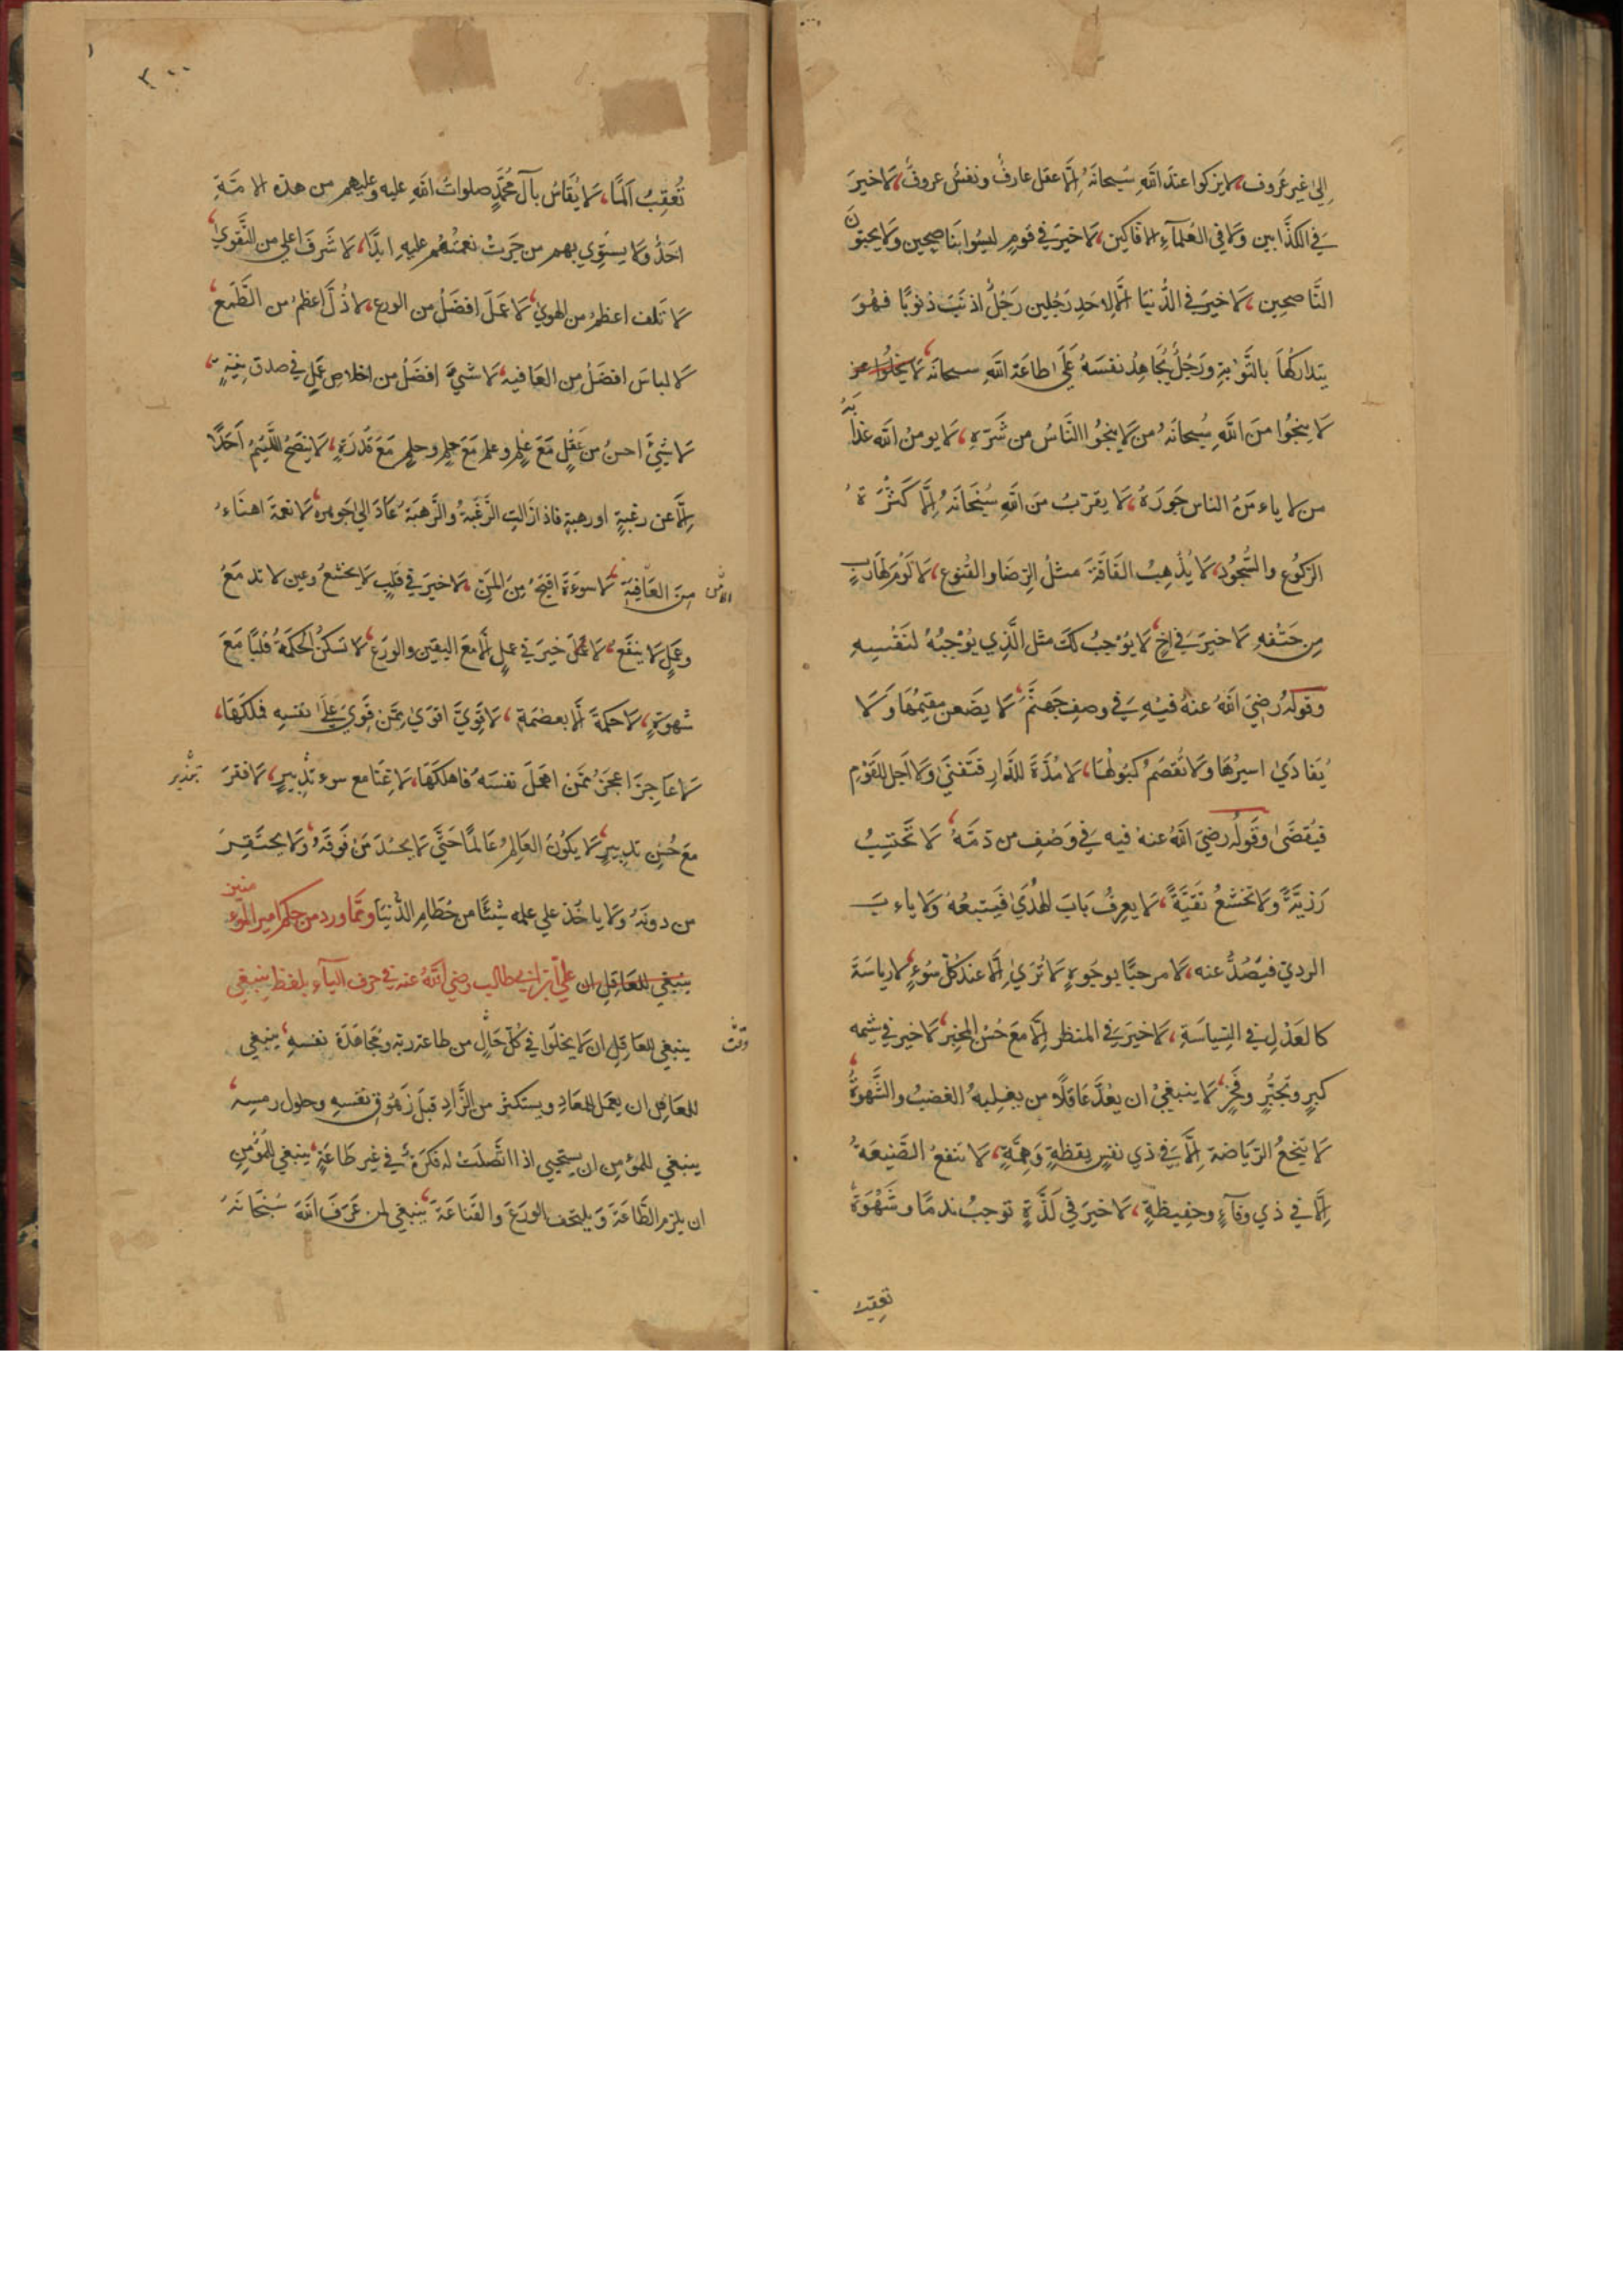 إلى غير عَروف، لا يزكوا عند الله سُبحانهُ إلّا عقل عارفٌ ونفسٌ عروفٌ، لا خيرَ
في الكذّابين ولا في العُلمآء الافّاكين، لا خيرَ في قومٍ ليسُوا بناصحين ولا يحبّونَ
النّاصحين، لا خيرَ في الدُّنيا إلّا لاحدِ رَجُلين رَجُلٌ اذنبَ ذنوبًا فهُوَ
يتداركُها بالتَّوبةِ ورَجُلٌ يُجاهِدُ نفسَهُ عَلَى اطاعَة اللهِ سبحانَهُ، لا يخلُوا من
لا ينجُوا منَ اللهِ سُبحانَهُ من لا ينجُوا النّاسُ من شَرّه، لا يومنُ الله عذابَهُ
من لا ياءمَنُ الناس جَورَهُ، لا يقرّبُ منَ اللهِ سُبْحَانَهُ إلّا كَثْرَةُ
الرّكُوع والسُّجُود، لا يُذْهِبُ الفَاقَةَ مثلُ الرِّضَا والقُنوع، لا لَومَ لهَارِبٍ
مِن حَتْفهِ لا خيرَ في اخٍ لا يُوْجبُ لكَ مثل الَّذِي يُوْجبُهُ لنَفْسِهِ
وقولُهُ رَضِيَ اللهُ عنهُ فيهِ في وصفِ جَهنَّمَ، لا يضَعن مقيمُها وَلا
يُفادَي اسيرُها ولا تُقصَمُ كبُولُهَا، لا مُدَّةَ للدَّارِ فتَفنَى ولا اجل للقَوْمِ
فيُقضَى وقَولُهُ رضِيَ اللهُ عنهُ فيه في وَصْفِ من ذمَّهُ، لا تَحتسِبُ
رَزيّةً ولا تخشعُ تقيَّةً، لا يعرفُ بَابَ الهُدَى فَيَتبعُهُ ولا باءبَ
الرديّ فيَصُدُّ عنه، لا مرحبًا بوجُوهٍ لا تُرَى إلّا عند كلّ سُوءٍ، لا رياسَةَ
كالعَدْلِ في السّياسَةِ، لا خيرَ في المنظر إلّا مَعَ حُسْن المخبر، لا خير في شيمه
كبرٍ وتجبُّرٍ وفَخْرٍ، لا ينبغيْ ان يُعَدَّ عَاقلًا من يغلبهُ الغضبُ والشَّهوَةُ
لا ينجعُ الرّيَاضة إلَّا في ذي نفسٍ يقظةٍ وَهِمَّةٍ، لا تنفعُ الصَّنيعَةُ
إلّا في ذي وفآءٍ وحفيظةٍ، لا خيرَ في لَذَّةٍ توجبُ ندمًا وشَهْوَةً
تعقب
٢٠٠
تُعْقِبُ اَلمًا، لا يُقَاسُ بآل مُحَمَّدٍ صلواتُ اللهِ عليه وعليهم من هذه الامّةِ
احَدٌ ولا يستوي بهم من جَرَتْ نعمتُهُم عليهِ ابدًا، لا شَرَفَ اعلي من التَّقوي
لا تلف اعظم من الهوي، لا عَمَلَ افضَلُ من الورع، لا ذُلَّ اعظمُ من الطَّمع
لا لباسَ افضَلُ من العَافيه، لا شيءَ افضَلُ من اخلاصِ عَمَلٍ في صدق نيّةٍ
لا شيْئَ احسنُ من عَقْلٍ مَعَ علمٍ وعلم مَعَ حلمٍ وحلمٍ مَعَ قُدرَةٍ، لا ينصَحُ اللَّئيمُ اَحَدًا
إلّا عن رغبةٍ اورهبةٍ فاذا زالتِ الرَّغبَةُ والرَّهبَةُ عَادَ الي جَوهره، لا نعمَة اهنَاءُ
مِنَ العَافِيَةِ لا سوءَةَ اقبَحُ مِنَ المَنِّ، لا خيرَ في قَلبٍ لا يخشعُ وعين لا تدمَعُ
وعَمَلٍ لا ينفعُ، لا خيرَ في عملٍ إلّا معَ اليقين والورَع، لا تسكنُ الحكمَةُ قلبًا مَعَ
شهوَةٍ، لا حكمَةَ إلّا بعصْمَةٍ، لا قويَّ اقوَى مِمَّن قوِيَ عَلَى نفسهِ فملكَهَا،
لا عَاجزَ اعجَزُ ممَّن اهمَلَ نفسَهُ فاهلكَهَا، لا غنَا مع سوء تدبيرٍ، لا فقرَ تبذير
معَ حُسْنِ تدبيرٍ، لا يكُونُ العَالِمُ عَالمًا حَتَّي لا يحسُدَ مَن فَوقَهُ ولا يحتقِرَ
من دونَهُ ولا ياخُذ علي علمه شيْئًا من حُطَامِ الدُّنيَا ومّما ورد من حِكَم امير المؤمنين
ينبغي للعَاقِل ان علي ابن ابي طالب رضي اللهُ عنه في حرف اليآء بلفظ ينبغي
ينبغي للعَاقِل ان لا يخلوا في كُلّ حَالٍ من طاعة ربّه ومُجَاهَدَة نفسهِ، ينبغي
للعَاقِل ان يعمَل للمعَادِ ويستكثر من الزَّادِ قبلَ زهُوقِ نفسهِ وحلول رمسِه
ينبغي للمؤمن ان يستحيي اذا اتَّصلَت له فكرَةٌ في غير طاعَةٍ، ينبغي للمُؤمن
ان يلزم الطَّاعَةَ وَيلتحف الورَعَ والقنَاعَة، ينبغي لمن عَرَفَ اللهَ سُبْحَانَهُ